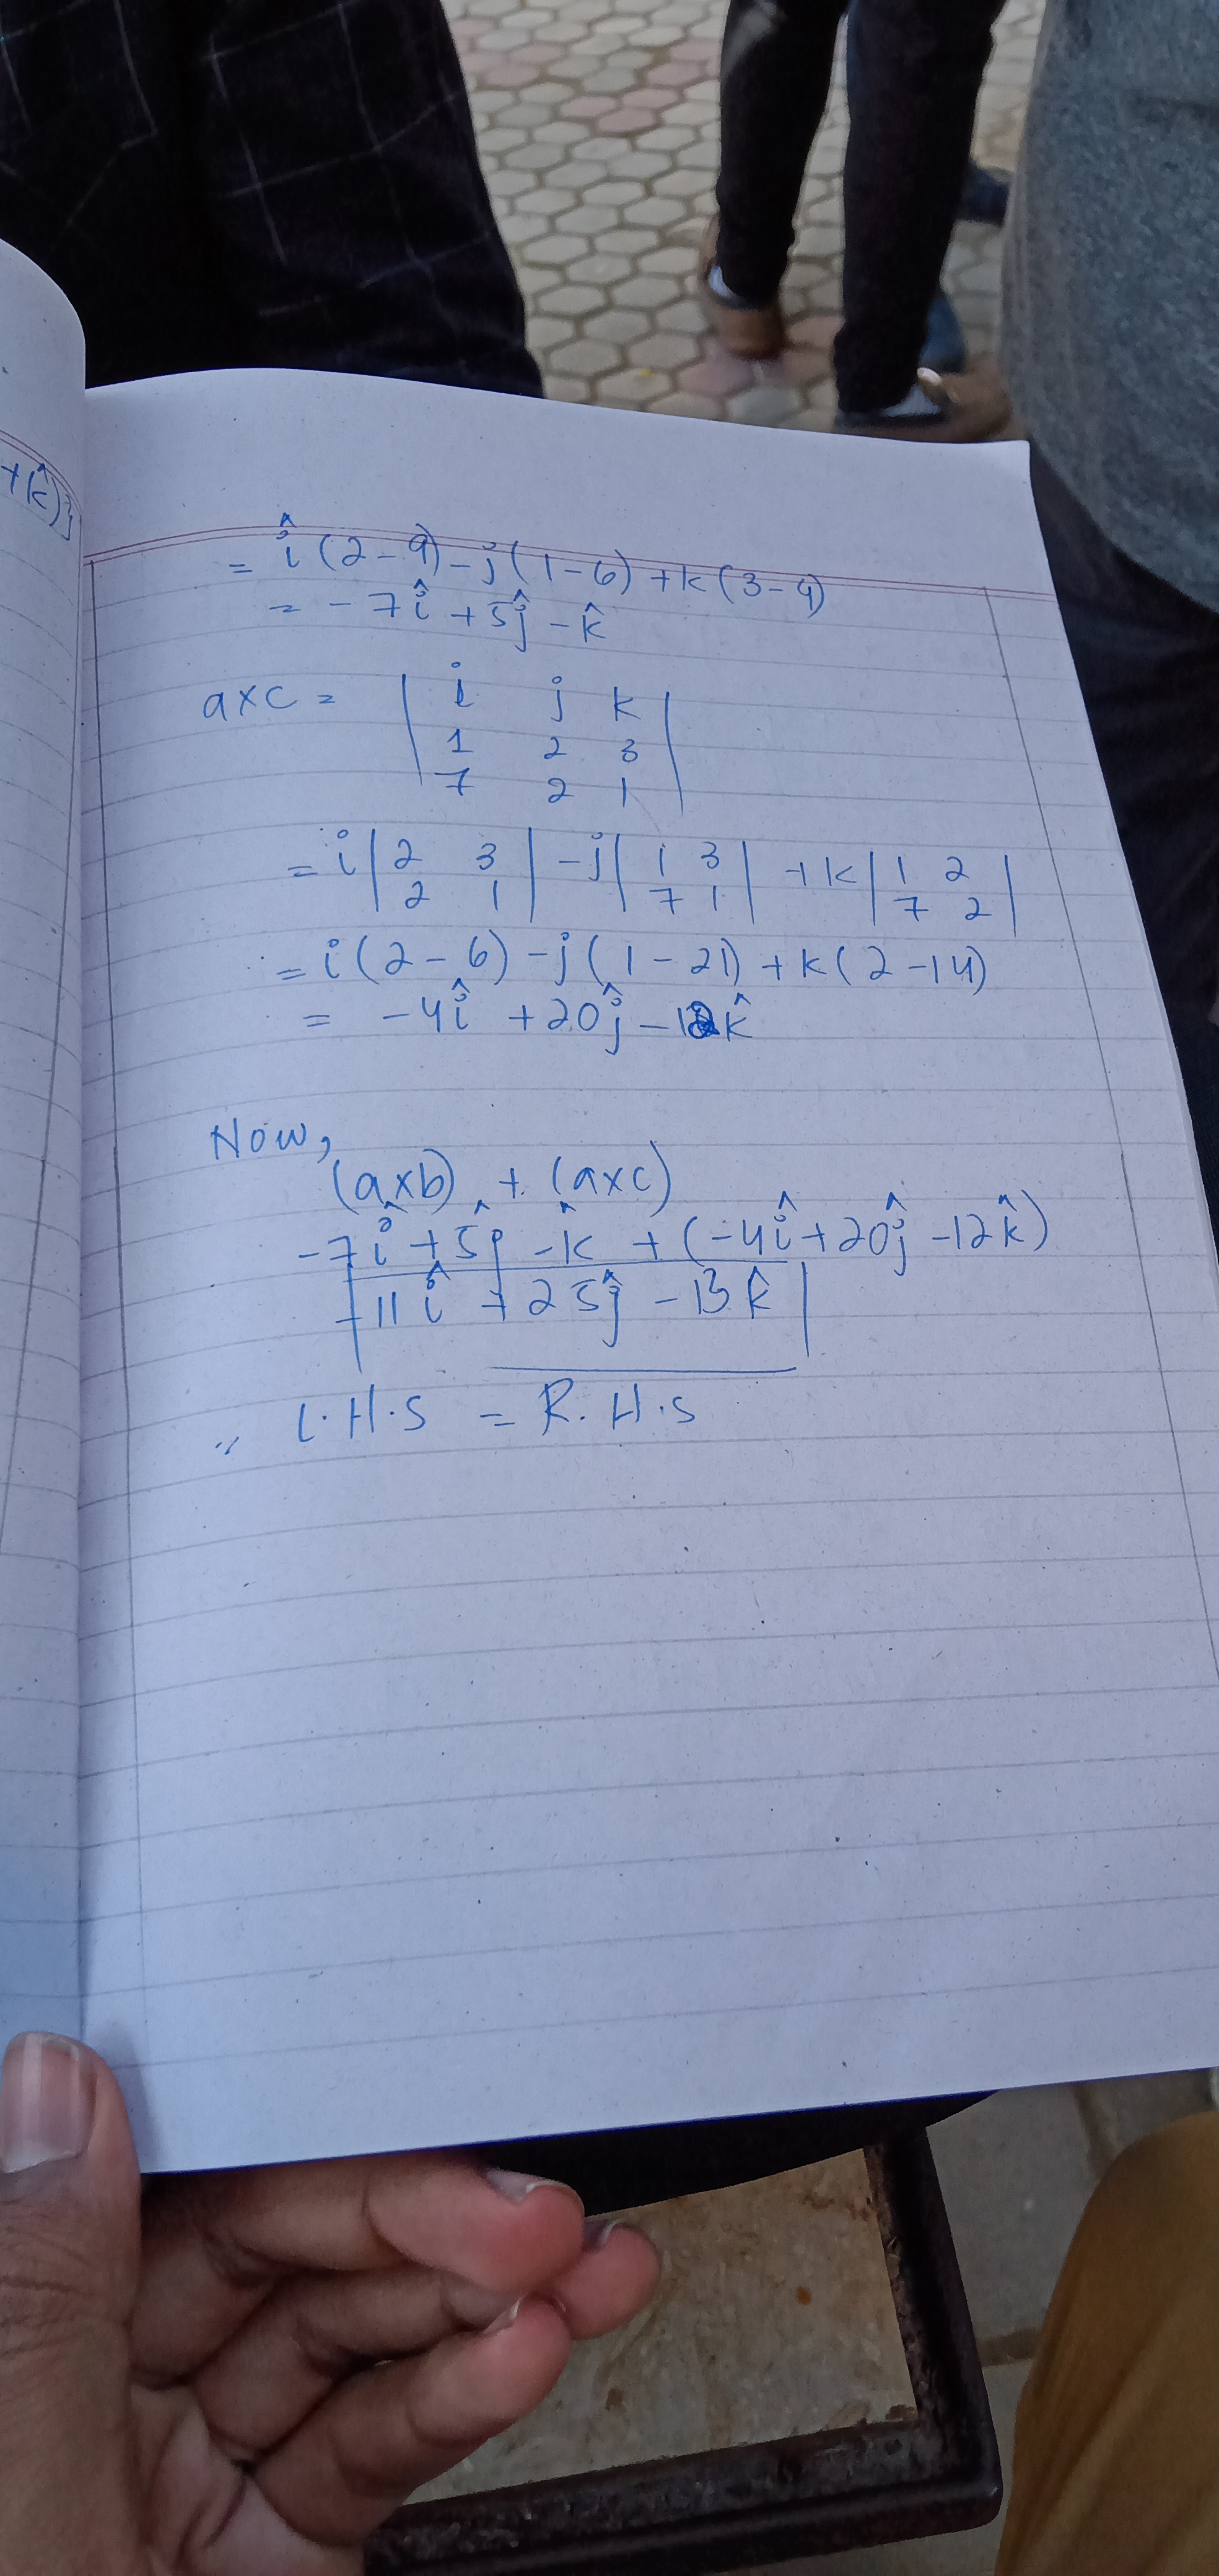 +k̂)}
= î(2-9)-j(1-6)+k(3-4)
= -7î+5ĵ-k̂
a×c = | i j k |
| 1 2 3 |
| 7 2 1 |
= i | 2 3 | -j | 1 3 | +k | 1 2 |
| 2 1 | | 7 1 | | 7 2 |
= i(2-6)-j(1-21)+k(2-14)
= -4î+20ĵ-12k̂
Now,
(a×b) + (a×c)
-7î+5ĵ-k̂+(-4î+20ĵ-12k̂)
-11î+25ĵ-13k̂
L.H.S = R.H.S